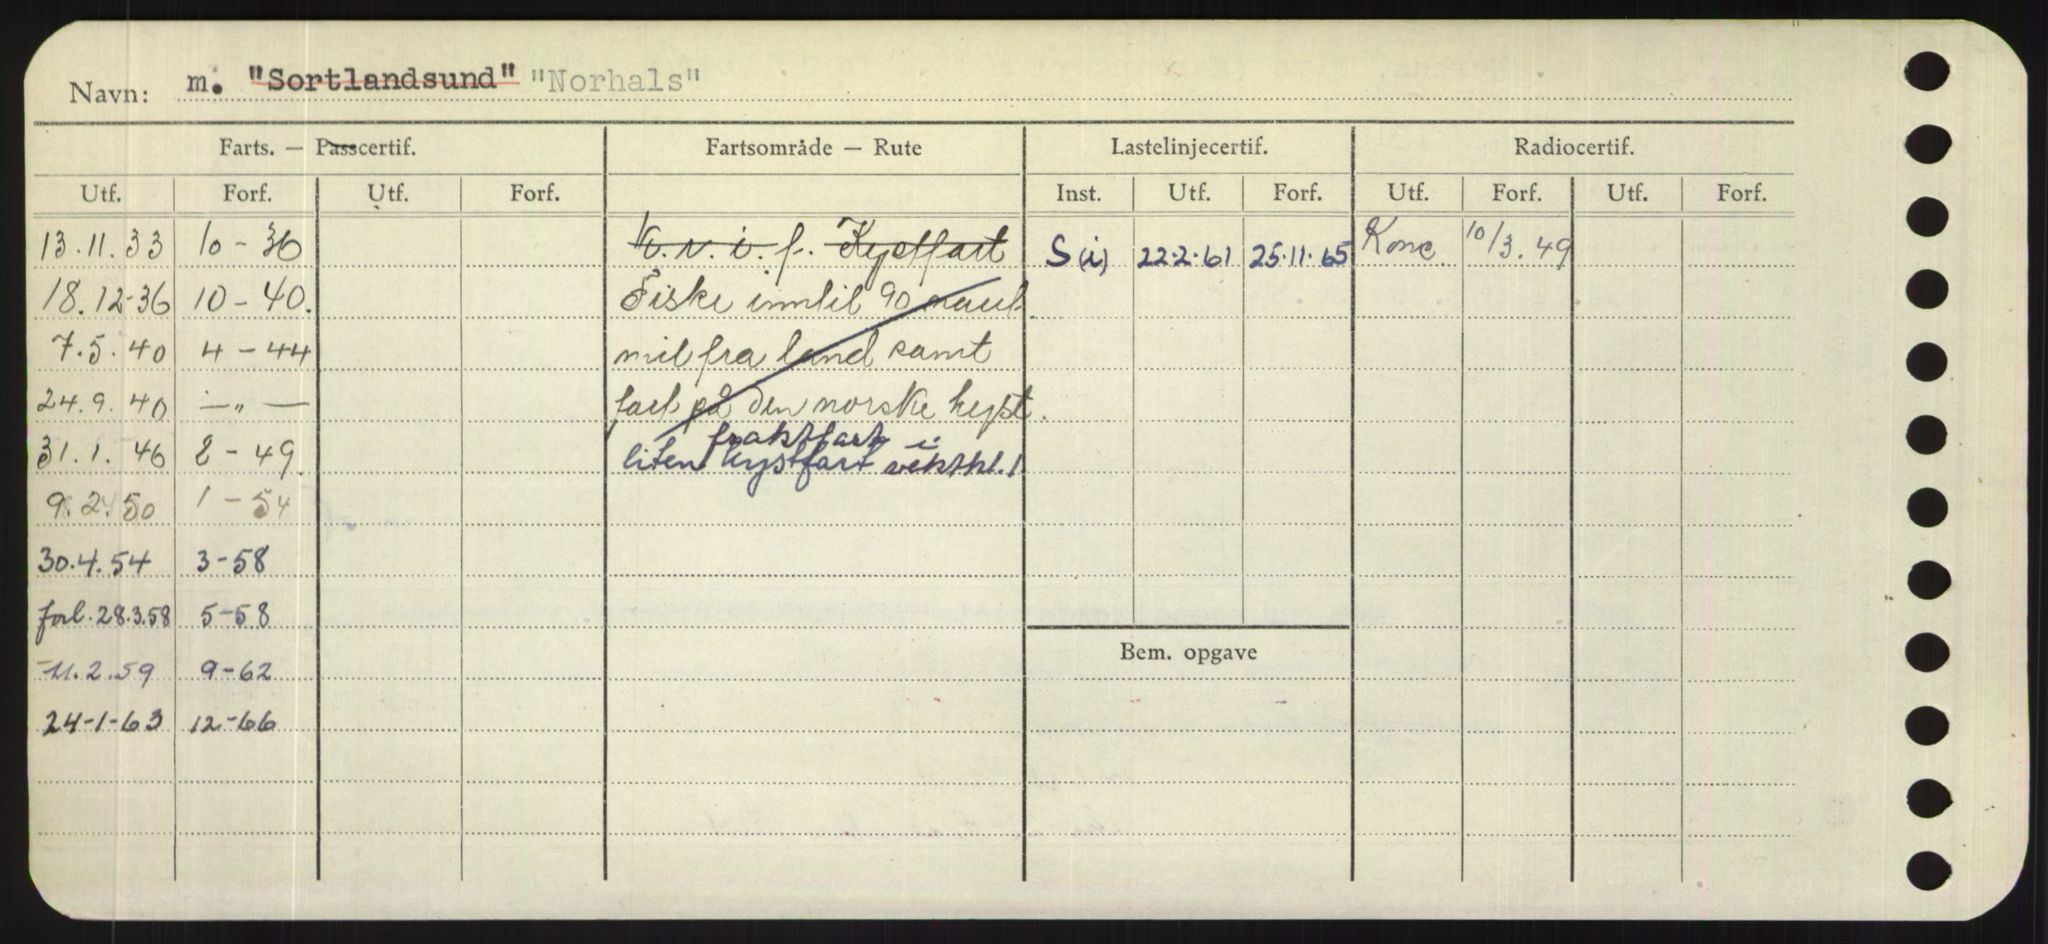 Navn: m. "Sortlandsund" "Norhals"
Farts. — Passcertif. Fartsområde — Rute Lastelinjecertif. Radiocertif.
Utf. Forf. Utf. Forf. Inst. Utf. Forf. Utf. Forf. Utf. Forf.
13.11.33 10-36 f. Kystfart S (i) 22.2.61 25.11.65 Konc. 10/3.49
18.12-36 10-40. Fiske inntil 90 naut.
7.5.40 4-44 mil fra land samt
24.9.40 —„— fart på den norske kyst.
fraktfart i
31.1.46 2-49. liten kystfart
9.2.50 1-54
30.4.54 3-58
forl. 28.3.58 5-58
Bem. opgave
11.2.59 9-62
24-1-63 12-66